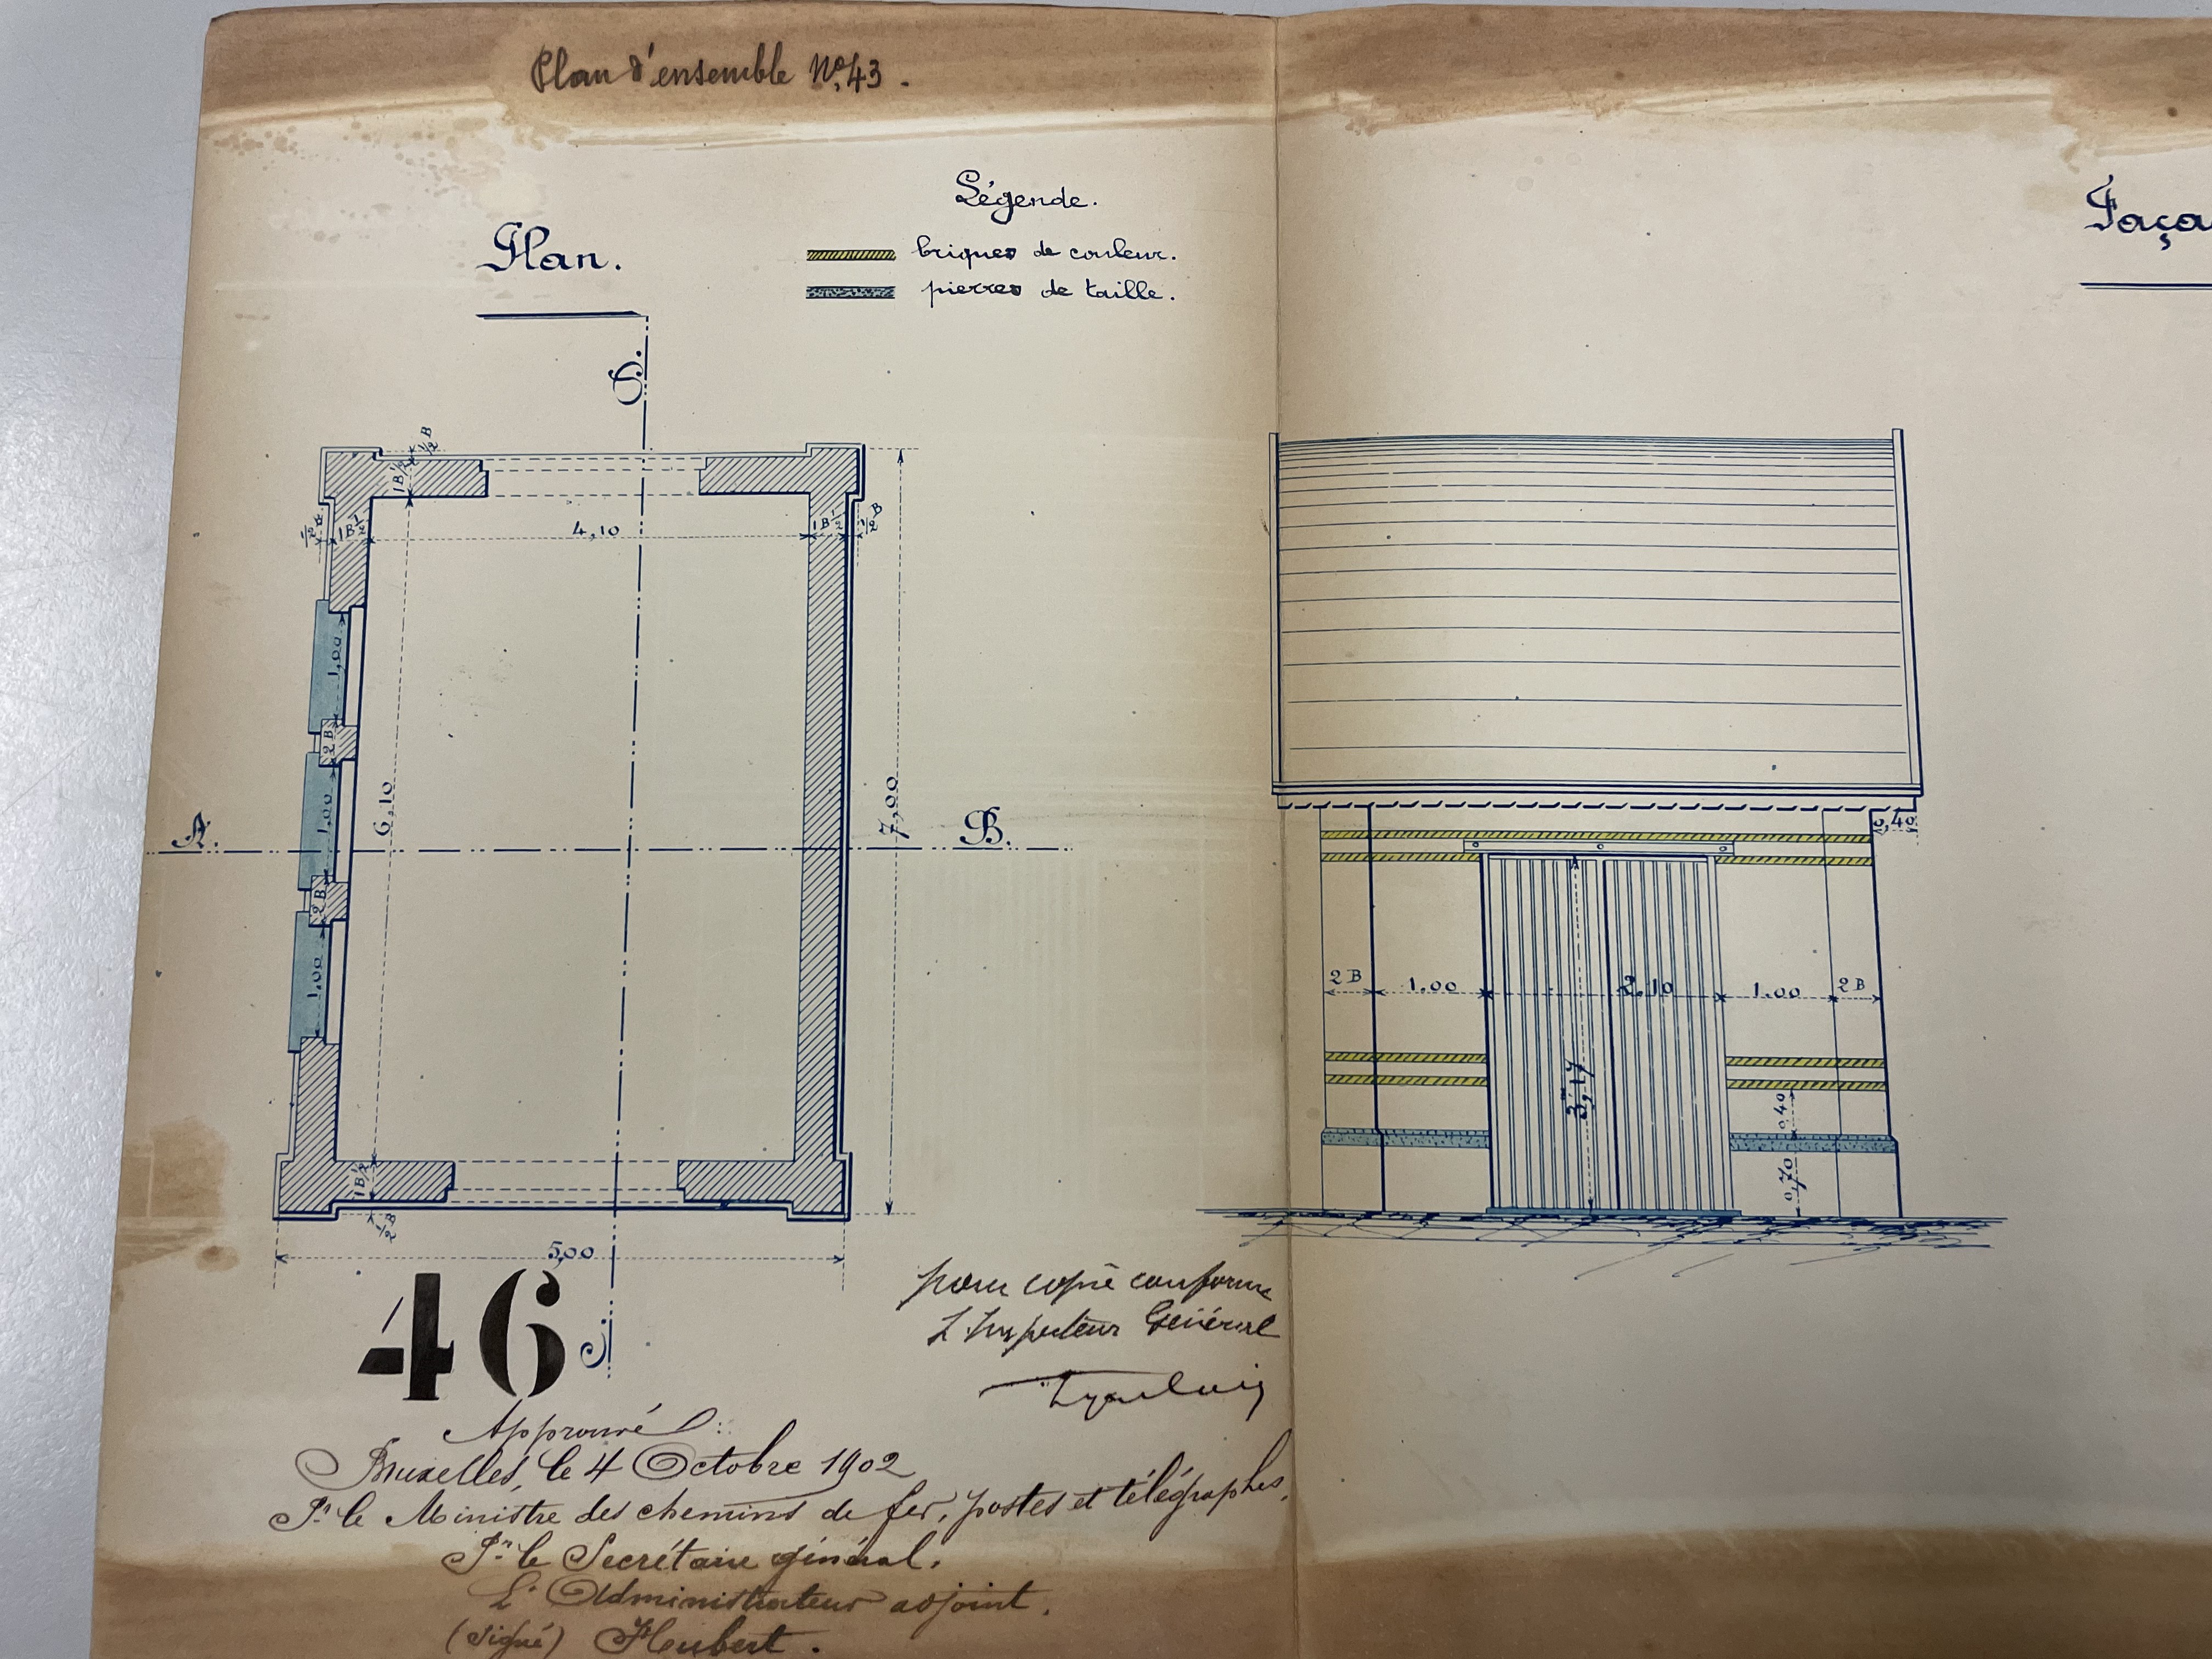 Plan d'ensemble No. 43.
Légende.
Plan.
briques de couleur.
pierres de taille.
Faça
C.
1/2 B
1B 1/2
1/2
1B 1/2
4,10
1B 1/2
1/2 B
1,00
2 B
6,10
1,00
7,00
A.
B.
2 B
1,00
1B 1/2
1/2 B
5,00
0,40
2 B
1.00
2.10
1.00
2 B
3,17
0,40
0,70
46
pour copie conforme
L'Inspecteur Général
Approuvé:
Bruxelles, le 4 Octobre 1902
Pr. le Ministre des chemins de fer, postes et télégraphes,
Pr. le Secrétaire général,
L'Administrateur adjoint.
(signé) Hubert.